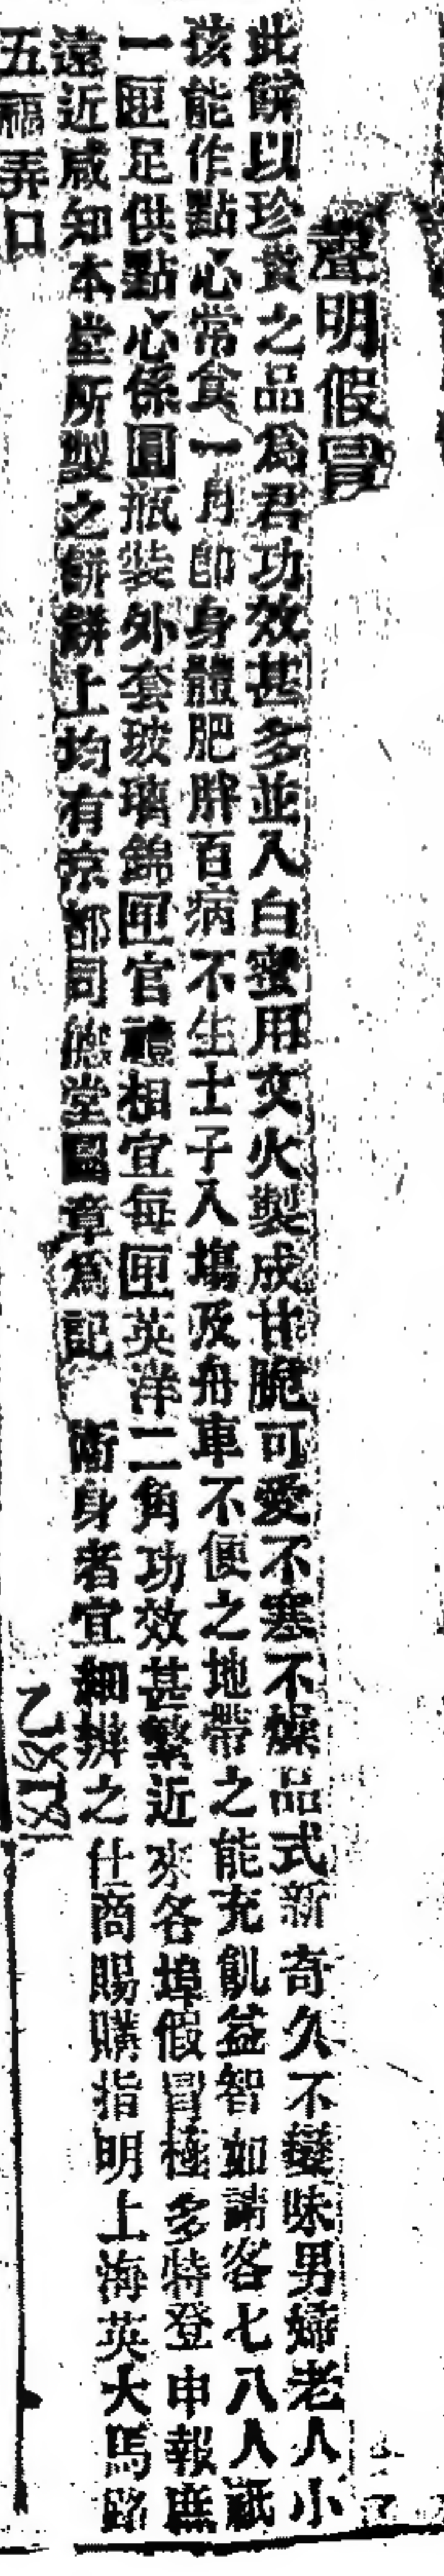 聲明假冒
此餅以珍貴之品爲君功效甚多並入白蜜用文火製成甘脆可愛不寒不燥品式新奇久不變味男婦老人小
孩能作點心常食一月卽身體肥胖百病不生士子入塲及舟車不便之地帶之能充飢益智如請客七八人祇
一匣足供點心係圓瓶裝外套玻璃錦匣官禮相宜每匣英洋二角功效甚繁近來各埠假冒極多特登申報庶
遠近咸知本堂所製之餅餅上均有京都同德堂圖章爲記 衛身者宜細辨之 仕商賜購指明上海英大馬路
五福弄口